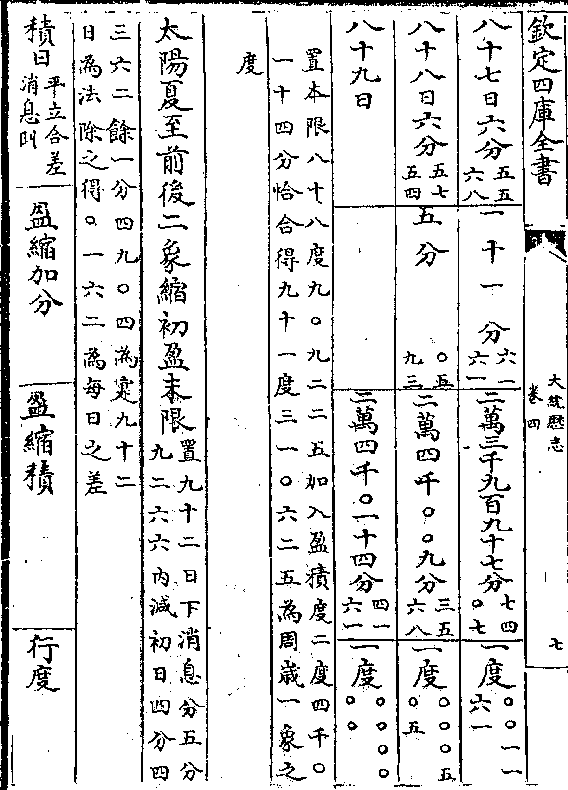 欽定四庫全書
大統歷志
卷四
七
八十七日 六分五五六八 一十一分六一六一 二萬三千九百九十七分七四〇七 一度〇〇一一六一
八十八日 六分五七五四 五分〇五九三 二萬四千〇〇九分三五六八 一度〇〇〇五〇五
八十九日 二萬四千〇一十四分四一六一 一度〇〇〇〇〇〇
置本限八十八度九〇九二二五加入盈積度二度四千〇
一十四分恰合得九十一度三一〇六二五為周歲一象之
度
太陽夏至前後二象縮初盈末限置九十二日下消息分五分
九二六六內減初日四分四
三六二餘一分四九〇四為實九十二
日為法除之得〇一六二為每日之差
積日 平立合差
消息
盈縮加分
盈縮積
行度